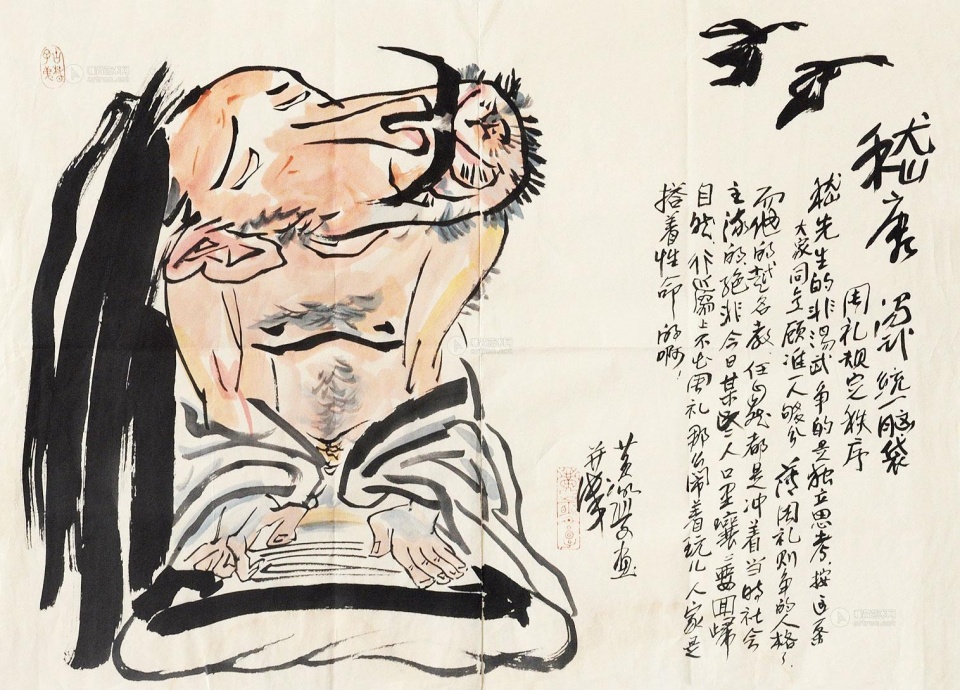 嵇康 汤武统一脑袋
周礼规定秩序
嵇先生的非汤武争的是独立思考,按这条
大家同意顾准一人够分 薄周礼则争的人格。
而他的越名教任自然都是冲着当时社会
主流的绝非今日某些人口里嚷嚷要回归
自然,行为上不出周礼那么闹着玩儿人家是
搭着性命的啊!
黄永厚画
并识